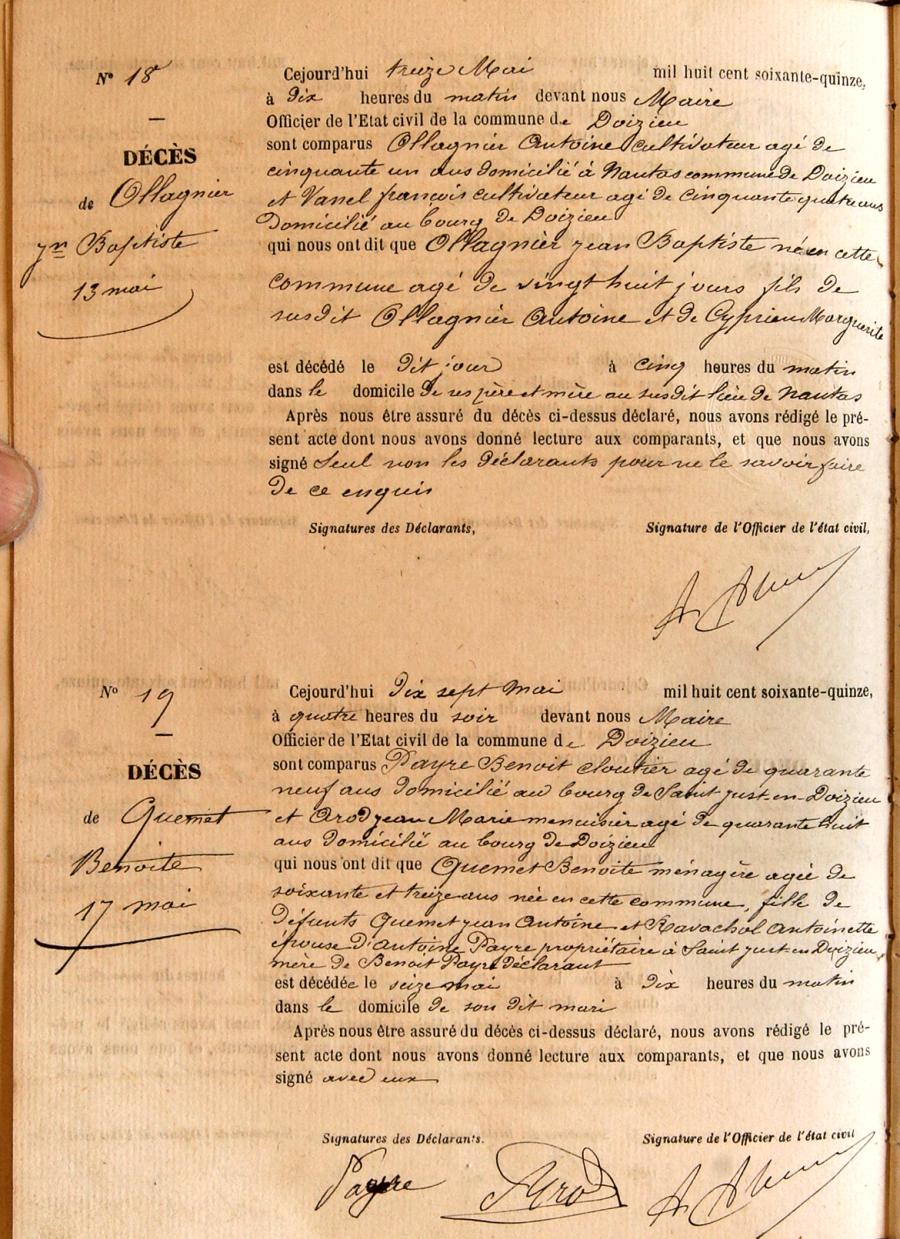 N° 18
DÉCÈS
de Ollagnier
jn Baptiste
13 mai
Cejourd'hui treize Mai mil huit cent soixante-quinze,
à Dix heures du matin devant nous Maire
Officier de l'Etat civil de la commune de Doizieu
sont comparus Ollagnier Antoine cultivateur agé de
cinquante un ans domicilié à Nautas commune de Doizieu
et Vanel françois cultivateur agé de cinquante quatre ans
Domicilié au bourg de Doizieu
qui nous ont dit que Ollagnier jean Baptiste né en cette
commune agé de vingt huit jours fils de
susdit Ollagnier Antoine et de Cyprien Marguerite
est décédé le dit jour à cinq heures du matin
dans le domicile de ses père et mère au susdit lieu de Nautas
Après nous être assuré du décès ci-dessus déclaré, nous avons rédigé le pré-
sent acte dont nous avons donné lecture aux comparants, et que nous avons
signé seul non les déclarants pour ne le savoir faire
de ce enquis
Signatures des Déclarants, Signature de l'Officier de l'état civil,
N° 19
DÉCÈS
de Quemet
Benoite
17 mai
Cejourd'hui Dix sept mai mil huit cent soixante-quinze,
à quatre heures du soir devant nous Maire
Officier de l'Etat civil de la commune de Doizieu
sont comparus Payre Benoit cloutier agé de quarante
neuf ans domicilié au bourg de Saint just-en-Doizieu
et Arod jean Marie menuisier agé de quarante huit
ans domicilié au bourg de Doizieu
qui nous ont dit que Quemet Benoite ménagère agée de
soixante et treize ans née en cette commune, fille de
défunts Quemet jean Antoine et Ravachol Antoinette
épouse d'Antoine Payre propriétaire à Saint just en Doizieu
mère de Benoit Payre déclarant
est décédée le seize mai à dix heures du matin
dans le domicile de son dit mari
Après nous être assuré du décès ci-dessus déclaré, nous avons rédigé le pré-
sent acte dont nous avons donné lecture aux comparants, et que nous avons
signé avec eux
Signatures des Déclarants. Signature de l'Officier de l'état civil
Payre Arod